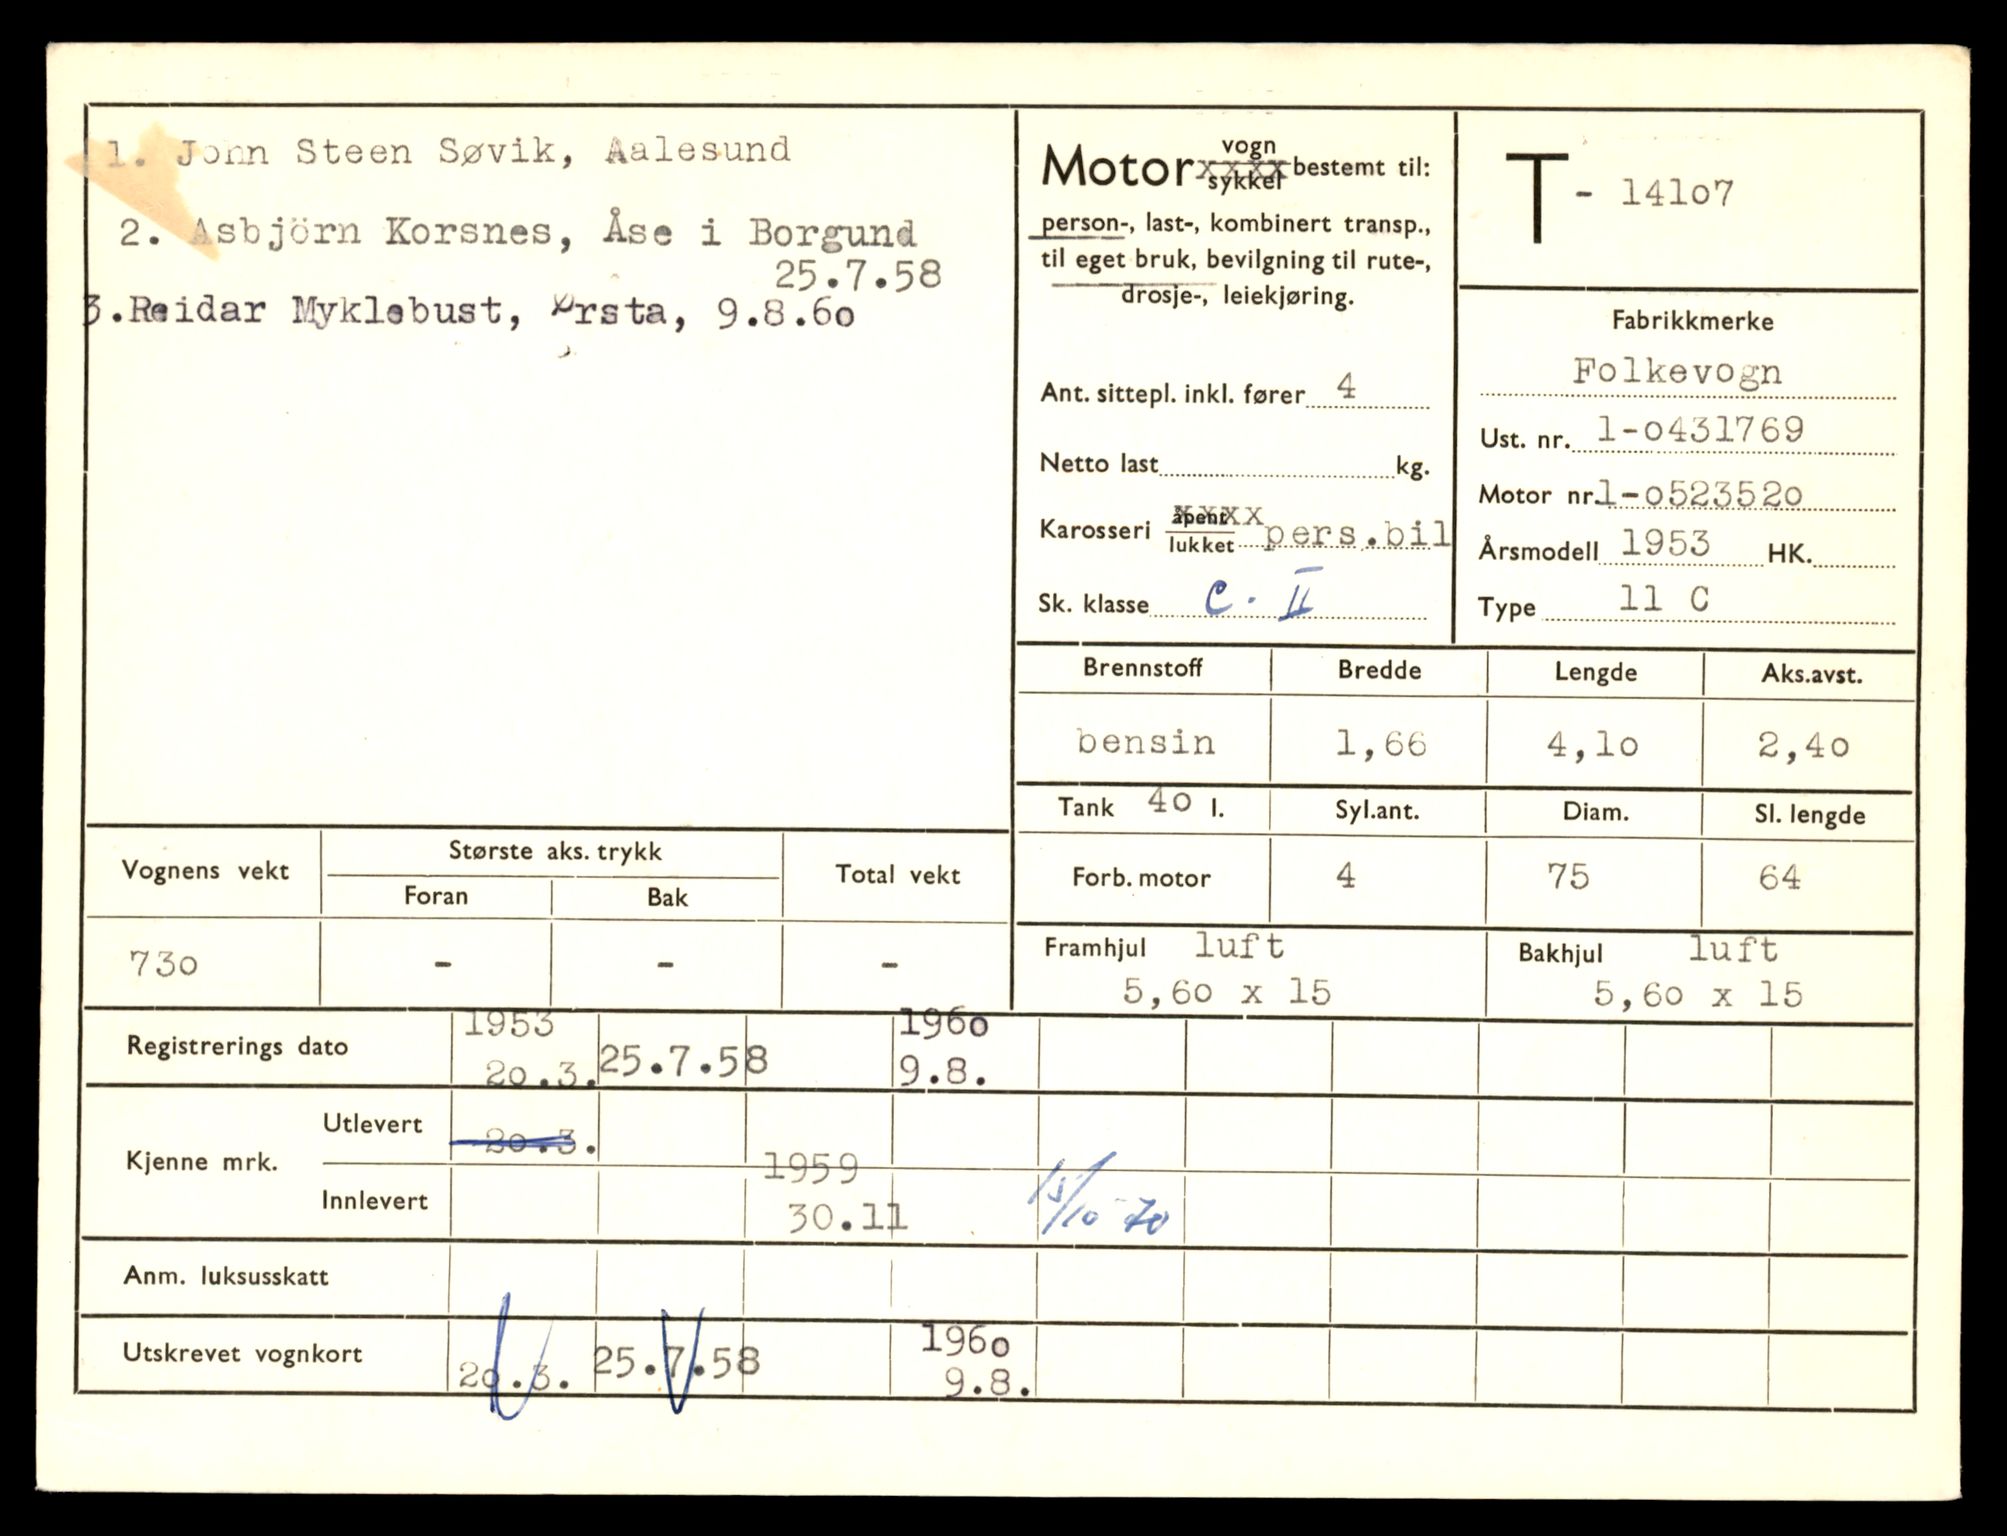 1. John Steen Søvik, Aalesund
2. Asbjörn Korsnes, Åse i Borgund
25.7.58
3.Reidar Myklebust, Ørsta, 9.8.6o
Motor vogn/sykkel bestemt til:
person-, last-, kombinert transp.,
til eget bruk, bevilgning til rute-,
drosje-, leiekjøring.
Ant. sittepl. inkl. fører 4
Netto last kg.
Karosseri åpent/lukket pers.bil
Sk. klasse C. II
T - 141o7
Fabrikkmerke
Folkevogn
Ust. nr. 1-o431769
Motor nr. 1-o52352o
Årsmodell 1953 HK.
Type 11 C
Brennstoff Bredde Lengde Aks.avst.
bensin 1,66 4,1o 2,4o
Tank 4o l. Syl.ant. Diam. Sl. lengde
Forb. motor 4 75 64
Framhjul luft Bakhjul luft
5,6o x 15 5,6o x 15
Vognens vekt Største aks. trykk Total vekt
Foran Bak
73o - - -
Registrerings dato 1953 196o
2o.3. 25.7.58 9.8.
Kjenne mrk. Utlevert 2o.3.
Innlevert 1959 30.11 15/10 70
Anm. luksusskatt
Utskrevet vognkort 196o
2o.3. 25.7.58 9.8.